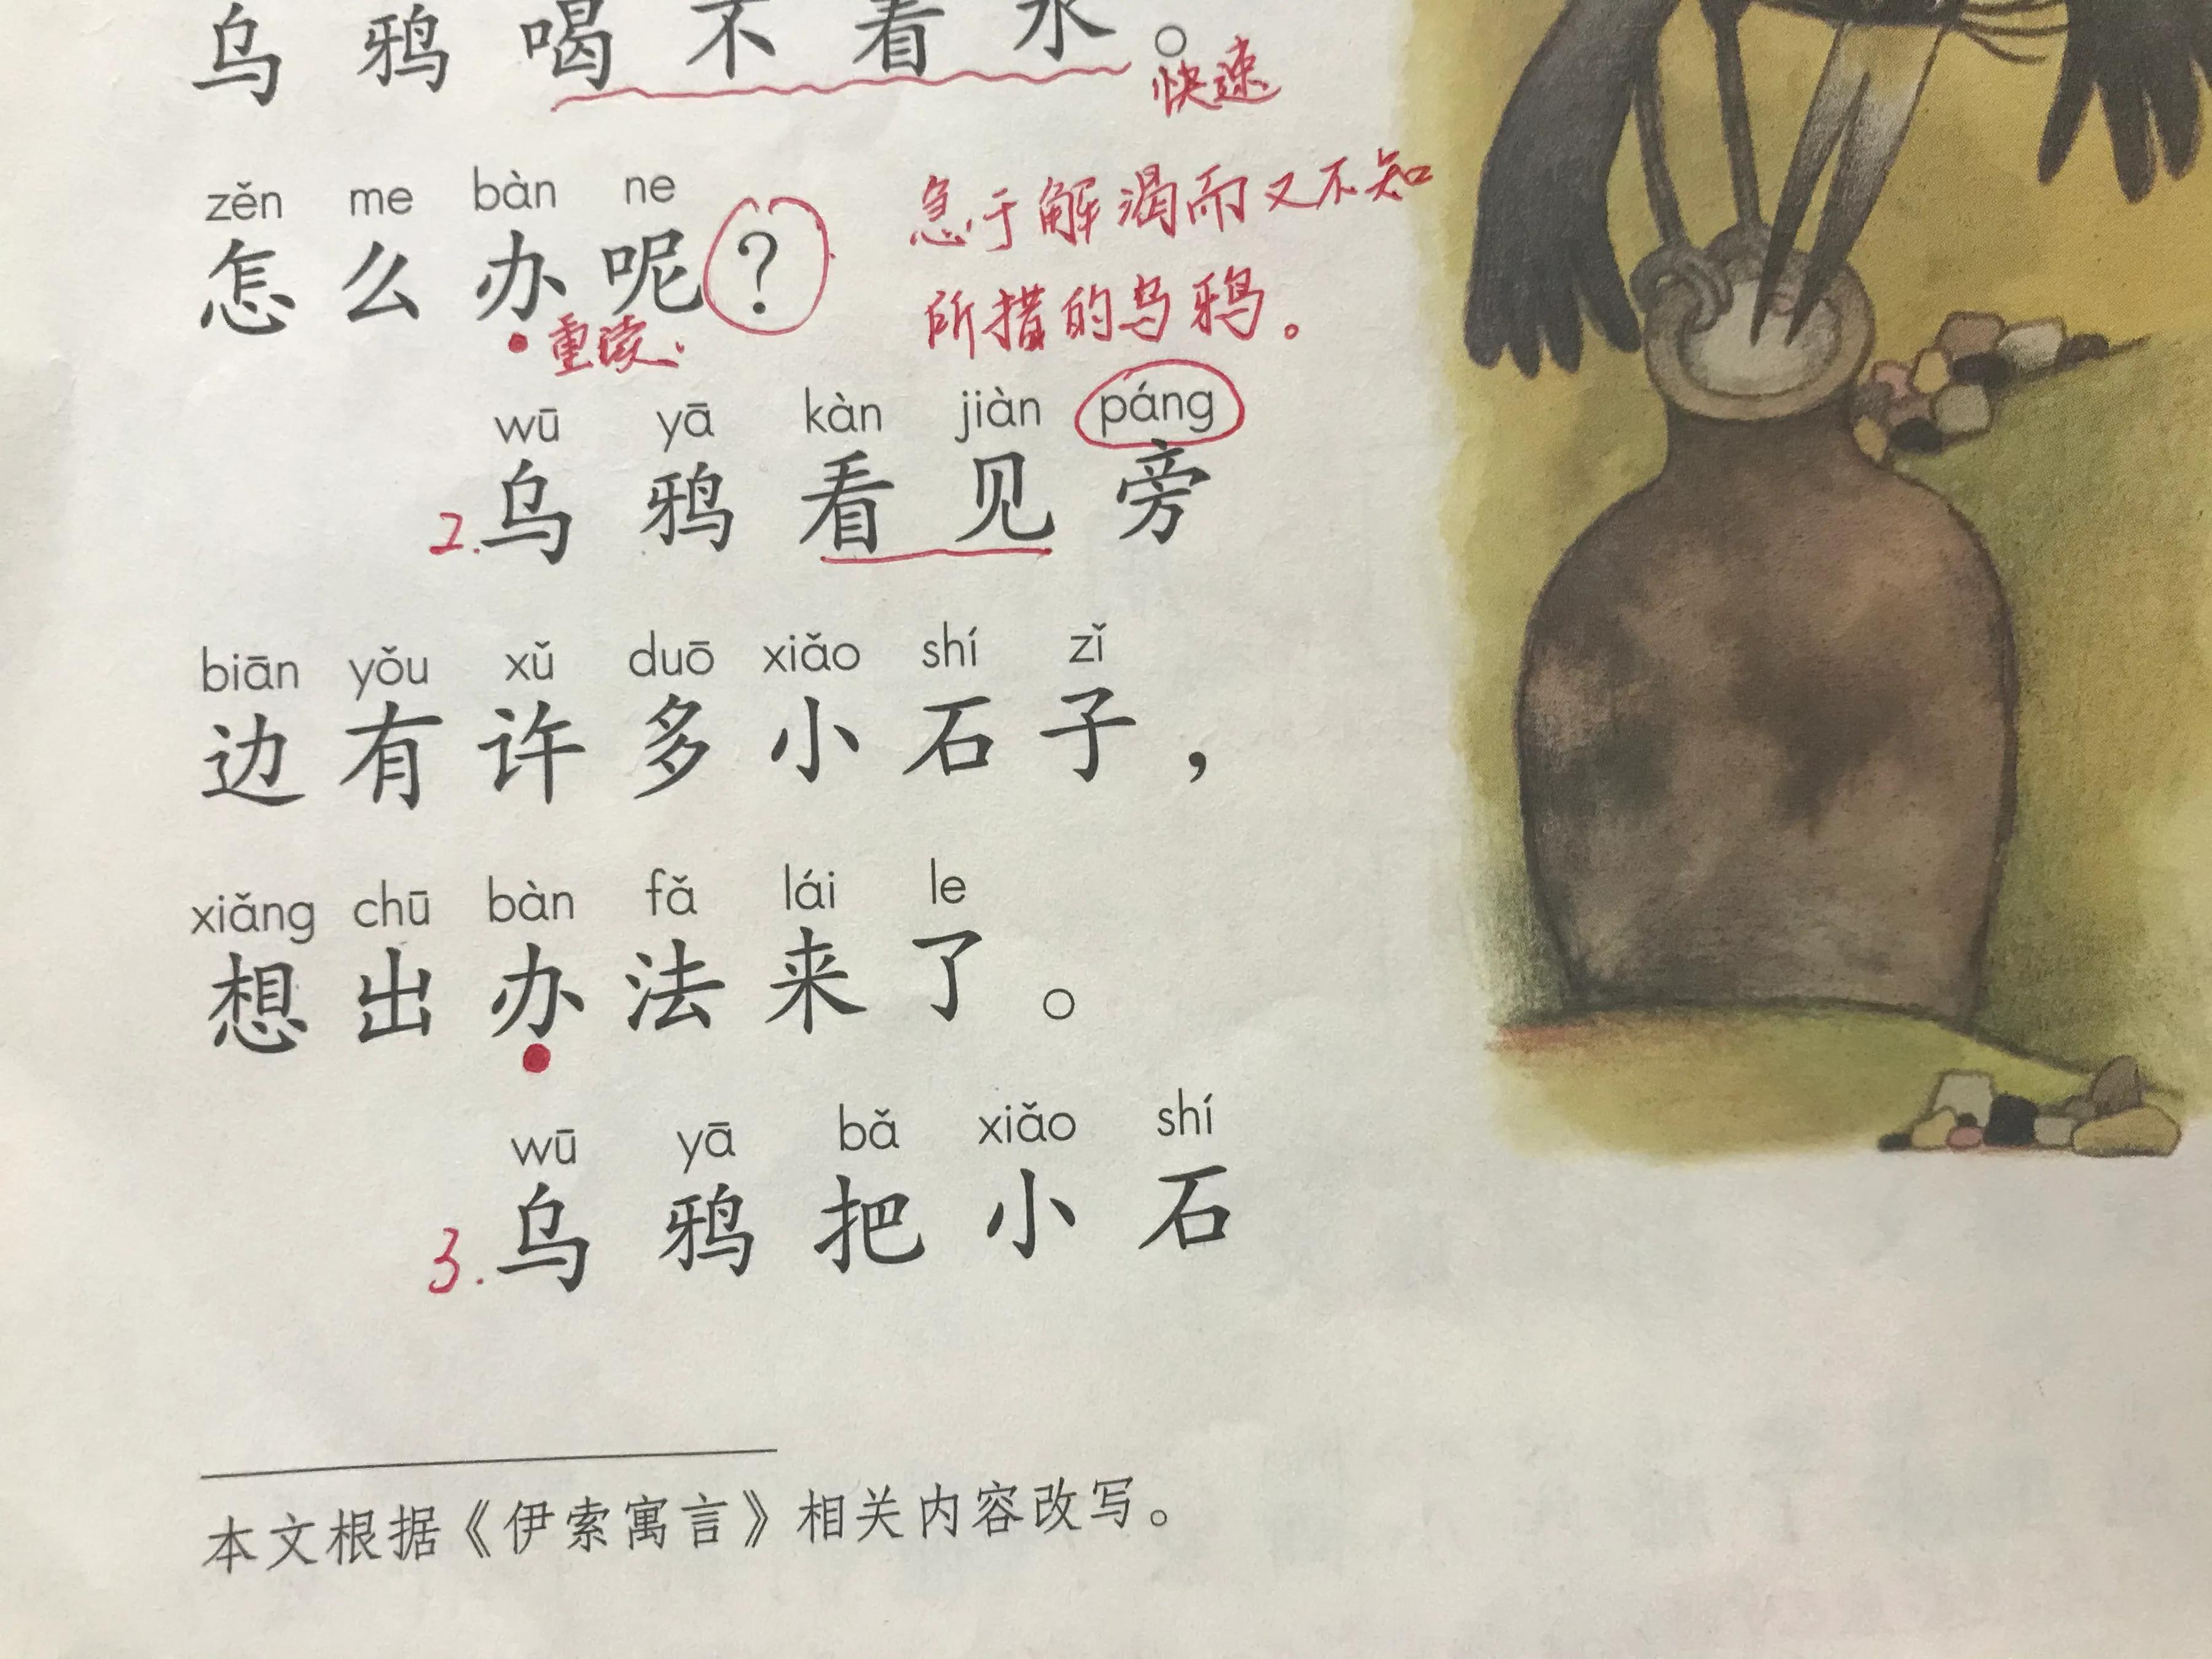 乌鸦喝不着水。
快速
zěn me bàn ne
怎么办呢?
重读.
急于解渴而又不知
所措的乌鸦。
wū yā kàn jiàn páng
2.乌鸦看见旁
biān yǒu xǔ duō xiǎo shí zǐ
边有许多小石子，
xiǎng chū bàn fǎ lái le
想出办法来了。
wū yā bǎ xiǎo shí
3.乌鸦把小石
本文根据《伊索寓言》相关内容改写。